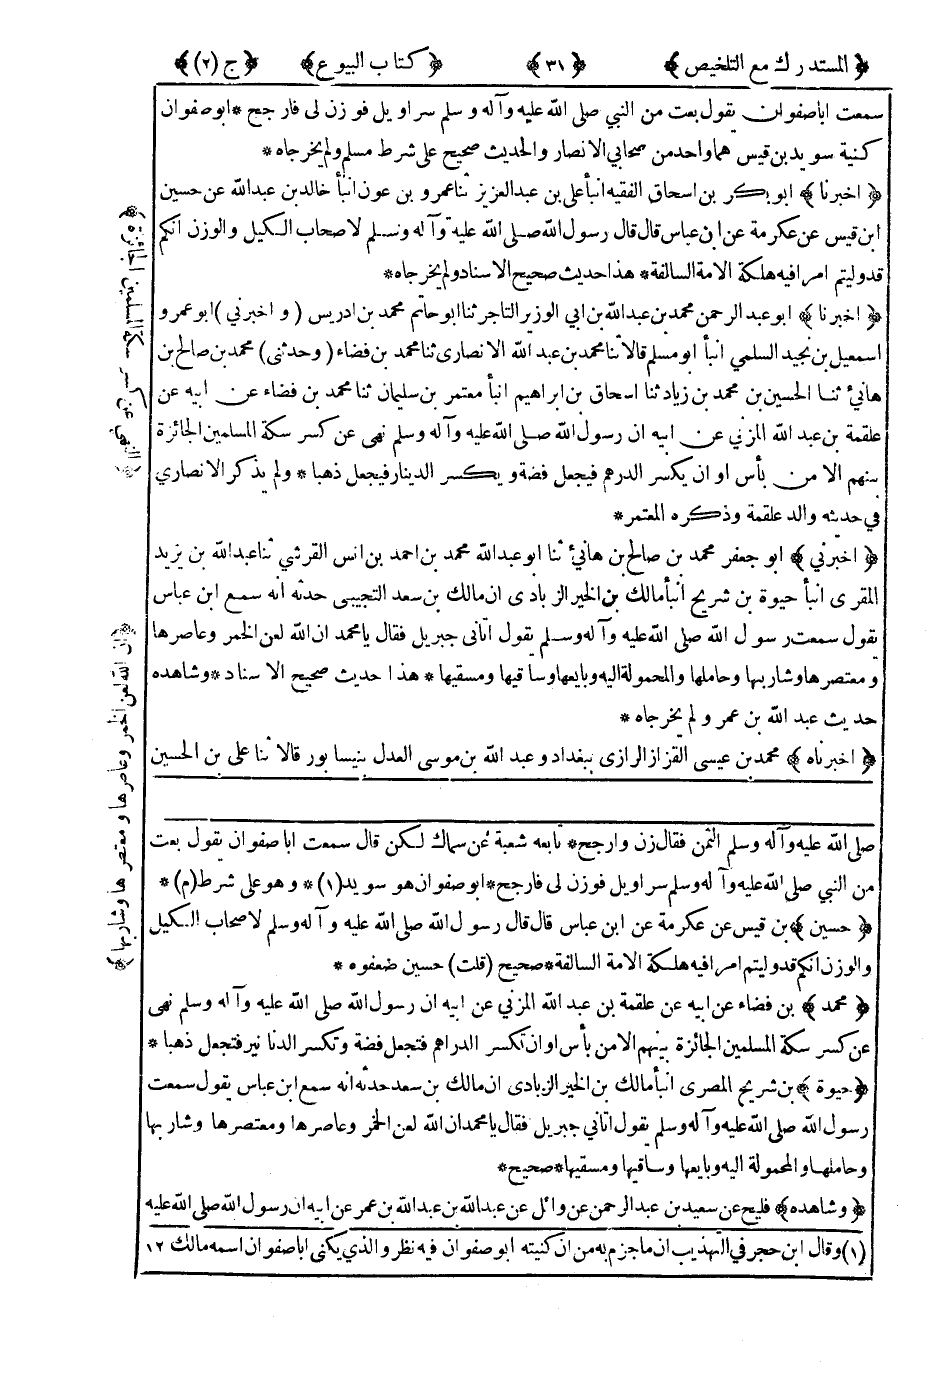 ﴿ المستدرك مع التلخيص ﴾ ﴿ ٣١ ﴾ ﴿ كتاب البيوع ﴾ ﴿ ج (٢) ﴾
سمعت اباصفوان يقول بعت من النبي صلى الله عليه وآله وسلم سراويل فوزن لى فارجح * ابوصفوان
كنية سويد بن قيس هما واحد من صحابي الانصار والحديث صحيح على شرط مسلم ولم يخرجاه *
﴿ اخبرنا ﴾ ابوبكر بن اسحاق الفقيه انبأ على بن عبدالعزيز ثنا عمرو بن عون انبأ خالد بن عبدالله عن حسين
ابن قيس عن عكرمة عن ابن عباس قال قال رسول الله صلى الله عليه وآله وسلم لاصحاب الكيل والوزن انكم
قد وليتم امرا فيه هلكة الامة السالفة * هذا حديث صحيح الاسناد ولم يخرجاه *
﴿ اخبرنا ﴾ ابوعبد الرحمن محمد بن عبدالله بن ابي الوزير التاجر ثنا ابو حاتم محمد بن ادريس ( و اخبرني ) ابوعمرو
اسمعيل بن نجيد السلمي انبأ ابو مسلم قالا ثنا محمد بن عبد الله الانصارى ثنا محمد بن فضاء ( وحدثنى ) محمد بن صالح بن
هانئ ثنا الحسين بن محمد بن زياد ثنا اسحاق بن ابراهيم انبأ معتمر بن سليمان ثنا محمد بن فضاء عن ابيه عن
علقمة بن عبد الله المزني عن ابيه ان رسول الله صلى الله عليه وآله وسلم نهى عن كسر سكة المسلمين الجائزة
بينهم الا من بأس او ان يكسر الدرهم فيجعل فضة ويكسر الدينار فيجعل ذهبا * ولم يذكر الانصاري
في حديثه والد علقمة وذكره المعتمر *
﴿ اخبرني ﴾ ابو جعفر محمد بن صالح بن هانئ ثنا ابو عبدالله محمد بن احمد بن انس القرشي ثنا عبدالله بن يزيد
المقرى انبأ حيوة بن شريح انبأ مالك بن الخير الزبادى ان مالك بن سعد التجيبى حدثه انه سمع ابن عباس
يقول سمعت رسول الله صلى الله عليه وآله وسلم يقول اتانى جبريل فقال يا محمد ان الله لعن الخمر وعاصرها
ومعتصرها وشاربها وحاملها والمحمولة اليه وبايعها وساقيها ومسقيها * هذا حديث صحيح الاسناد * وشاهده
حديث عبد الله بن عمر ولم يخرجاه *
﴿ اخبرناه ﴾ محمد بن عيسى القزاز الرازى ببغداد وعبد الله بن موسى العدل بنيسابور قالا ثنا على بن الحسين
صلى الله عليه وآله وسلم الثمن فقال زن وارجح * تابعه شعبة عن سماك لكن قال سمعت اباصفوان يقول بعت
من النبي صلى الله عليه وآله وسلم سراويل فوزن لى فارجح * ابو صفوان هو سويد (١) * وهو على شرط (م) *
﴿ حسين ﴾ بن قيس عن عكرمة عن ابن عباس قال قال رسول الله صلى الله عليه وآله وسلم لاصحاب الكيل
والوزن انكم قد وليتم امرا فيه هلكة الامة السالفة * صحيح (قلت) حسين ضعفوه *
﴿ محمد ﴾ بن فضاء عن ابيه عن علقمة بن عبد الله المزني عن ابيه ان رسول الله صلى الله عليه وآله وسلم نهى
عن كسر سكة المسلمين الجائزة بينهم الا من بأس او ان تكسر الدراهم فتجعل فضة وتكسر الدنانير فتجعل ذهبا *
﴿ حيوة ﴾ بن شريح المصرى انبأ مالك بن الخير الزبادى ان مالك بن سعد حدثه انه سمع ابن عباس يقول سمعت
رسول الله صلى الله عليه وآله وسلم يقول اتاني جبريل فقال يا محمد ان الله لعن الخمر وعاصرها ومعتصرها وشاربها
وحاملها والمحمولة اليه وبايعها وساقيها ومسقيها * صحيح *
﴿ وشاهده ﴾ فليح عن سعيد بن عبد الرحمن عن وائل عن عبدالله بن عبدالله بن عمر عن ابيه ان رسول الله صلى الله عليه
(١) وقال ابن حجر في التهذيب ان ما جزم به من ان كنيته ابو صفوان فيه نظر والذي يكنى اباصفوان اسمه مالك ١٢
﴿ النهي عن كسر سكة المسلمين الجائزة ﴾
﴿ ان الله لعن الخمر وعاصرها ومعتصرها وشاربها ﴾